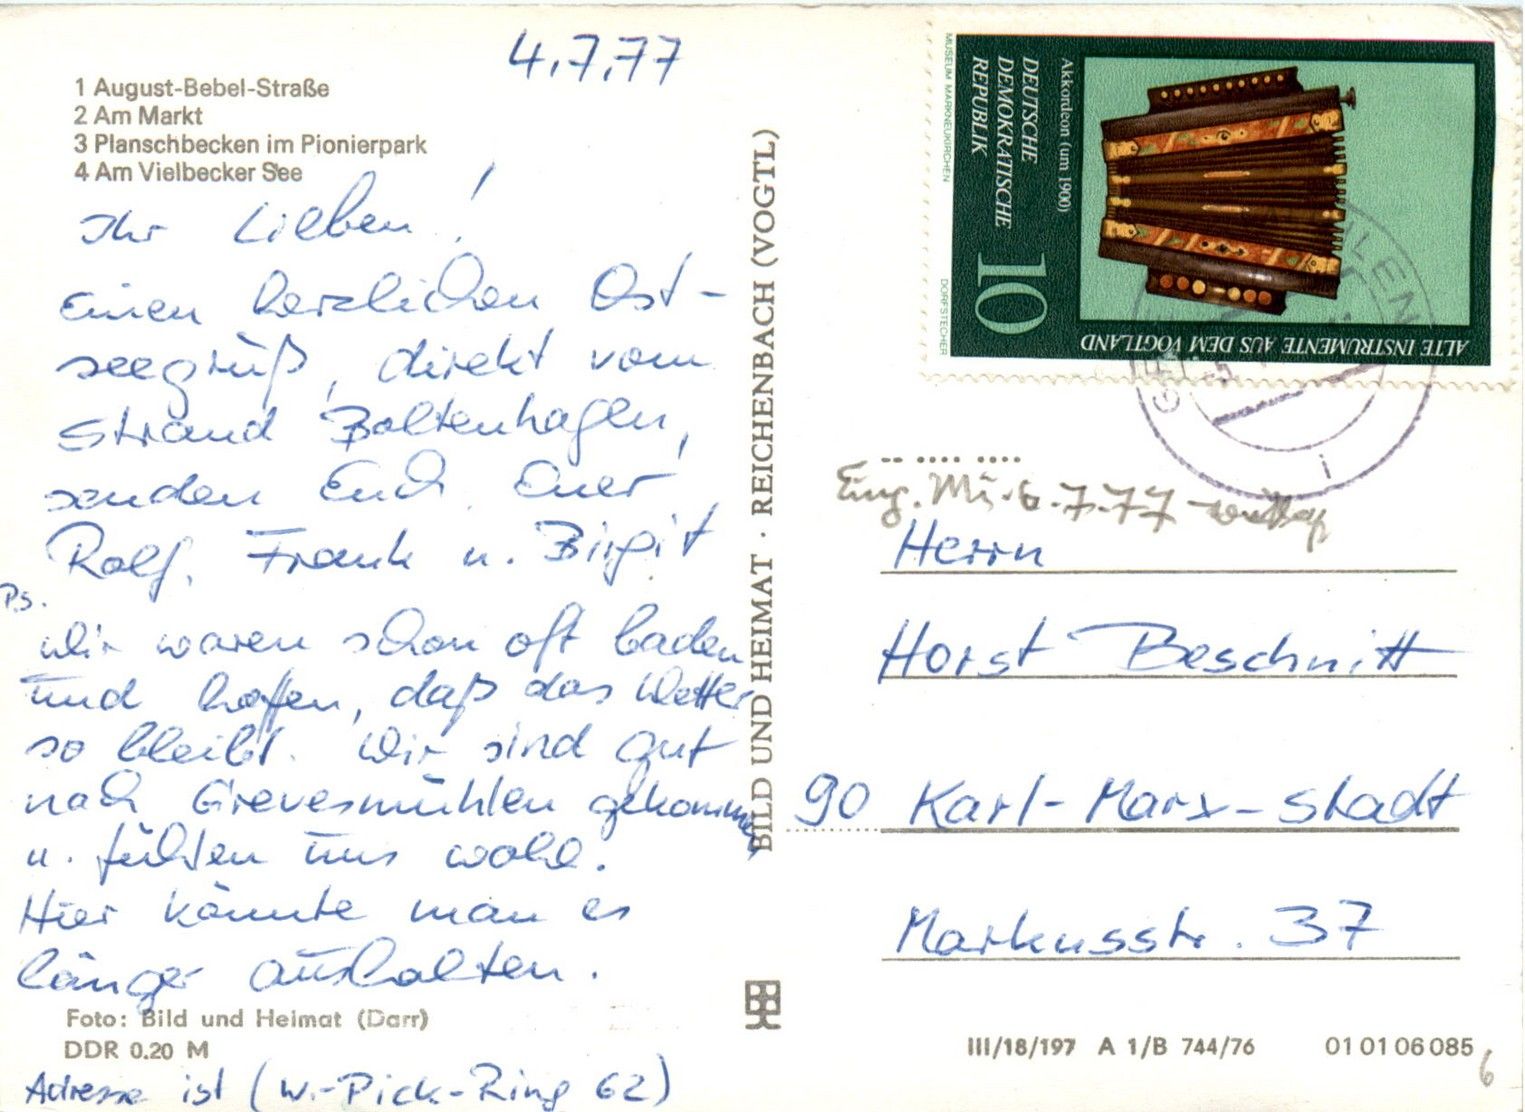 4.7.77
1 August-Bebel-Straße
2 Am Markt
3 Planschbecken im Pionierpark
4 Am Vielbecker See
Ihr Lieben!
Einen herzlichen Ost-
seegruß, direkt vom
Strand Boltenhagen,
senden Euch Euer
Rolf, Frank u. Birgit
P.S.
Wir waren schon oft baden
und hoffen, daß das Wetter
so bleibt. Wir sind gut
nach Grevesmühlen gekommen
u. fühlen uns wohl.
Hier könnte man es
länger aushalten.
Foto: Bild und Heimat (Darr)
DDR 0.20 M
Adresse ist (W.-Pick-Ring 62)
BILD UND HEIMAT · REICHENBACH (VOGTL)
MUSEUM MARKNEUKIRCHEN
DORFSTECHER
DEUTSCHE
DEMOKRATISCHE
REPUBLIK
10
Akkordeon (um 1900)
ALTE INSTRUMENTE AUS DEM VOGTLAND
Eing. Mi. 6.7.77
Herrn
Horst Beschnitt
90 Karl-Marx-Stadt
Markusstr. 37
III/18/197 A 1/B 744/76 01 01 06 085
6